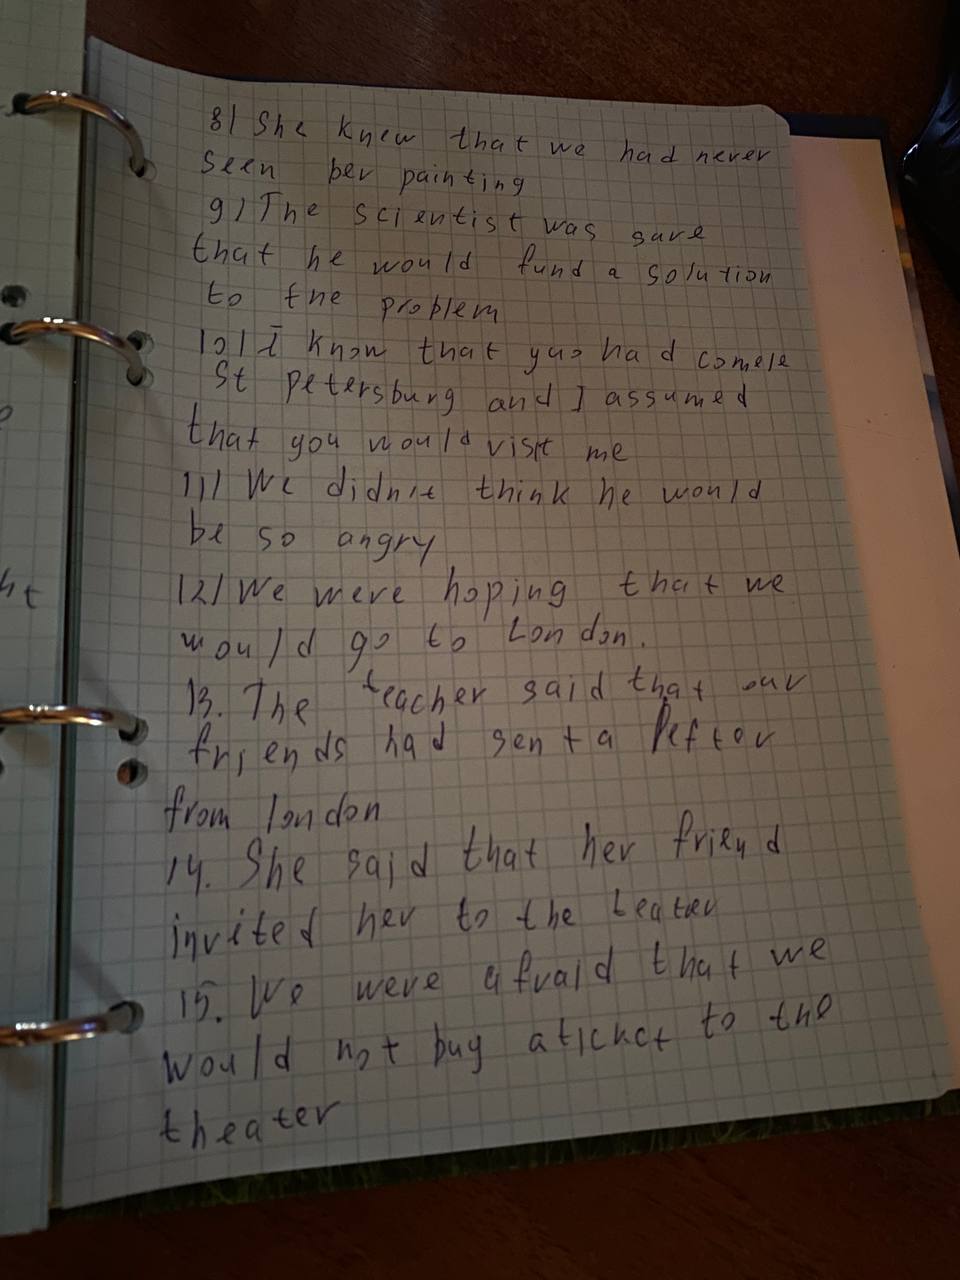 8) She knew that we had never
seen her painting
9) The scientist was sure
that he would fund a solution
to the problem
10) I know that you had come
St petersburg and I assumed
that you would visit me
11) We didn't think he would
be so angry
12) We were hoping that we
would go to London.
13. The teacher said that our
friends had sent a letter
from london
14. She said that her friend
invited her to the teater
15. We were afraid that we
would not buy a ticket to the
theater